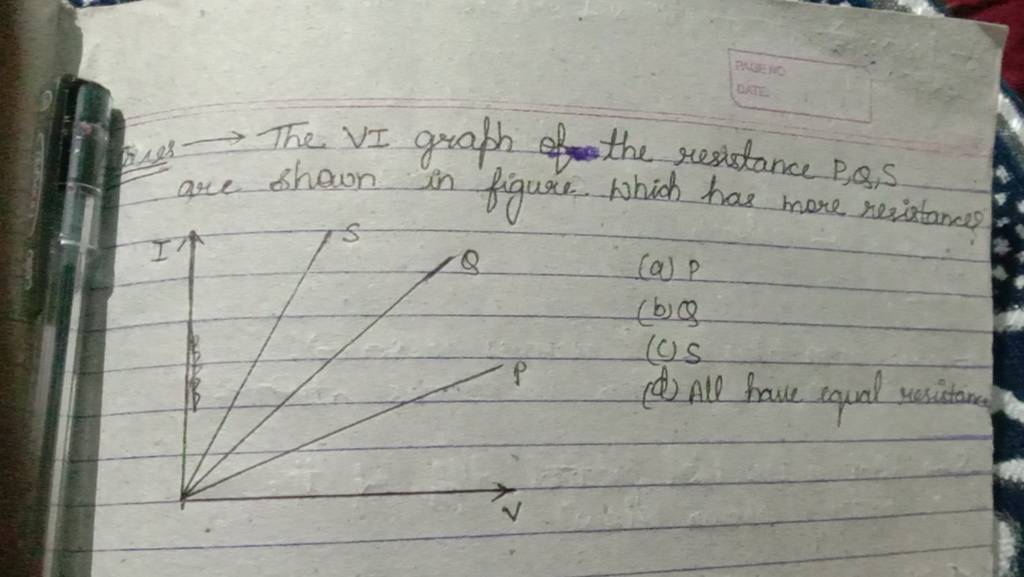 PAGE NO
DATE:
→ The VI graph of the resistance P,Q,S
are shown in figure. Which has more resistance?
I
S
Q
P
V
(a) P
(b) Q
(c) S
(d) All have equal resistance